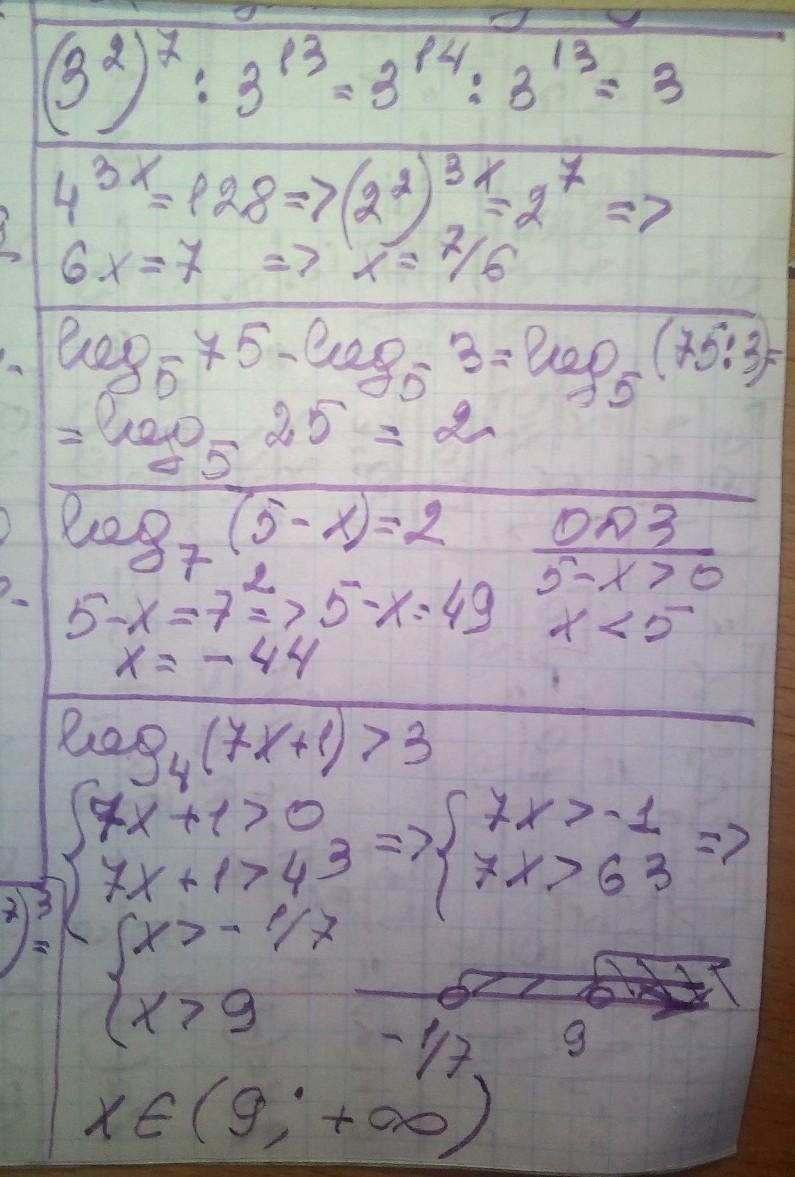 (3²)⁷ : 3¹³ = 3¹⁴ : 3¹³ = 3
4³ˣ = 128 => (2²)³ˣ = 2⁷ =>
6x = 7 => x = 7/6
log₅ 75 - log₅ 3 = log₅ (75:3) =
= log₅ 25 = 2
log₇ (5-x) = 2 ОДЗ
5-x>0
5-x = 7² => 5-x = 49 x < 5
x = -44
log₄ (7x+1) > 3
{7x+1>0 => {7x>-1 =>
7x+1>4³ 7x>63
{x > -1/7
x > 9
-1/7 9
x ∈ (9; +∞)
7)³
=